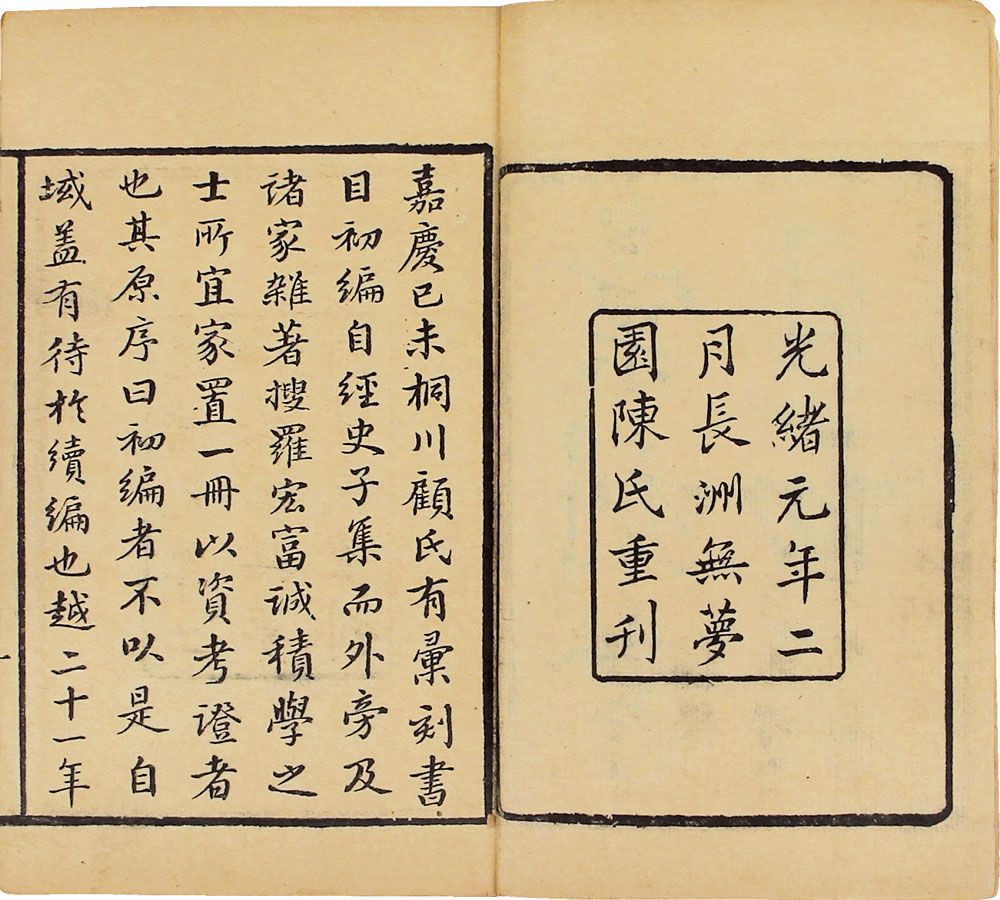 光緒元年二
月長洲無夢
園陳氏重刊
嘉慶己未桐川顧氏有彙刻書
目初編自經史子集而外旁及
諸家雜著搜羅宏富誠積學之
士所宜家置一冊以資考證者
也其原序曰初編者不以是自
域盖有待於續編也越二十一年